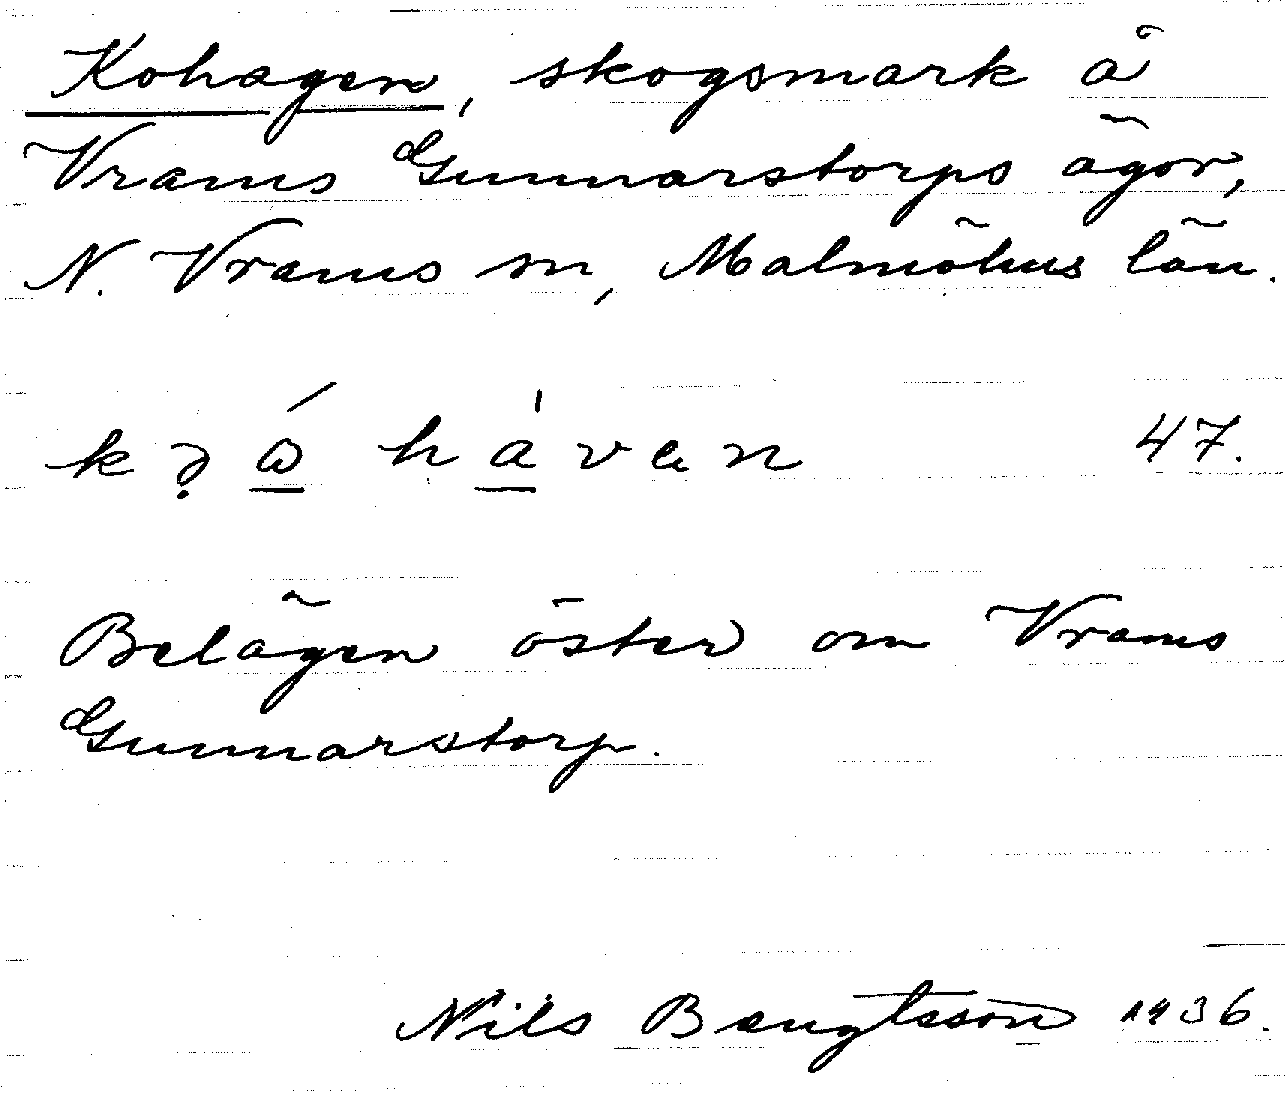 Kohagen, skogsmark å
Vrams Gunnarstorps ägor,
N. Vrams sn, Malmöhus län.
47.
Belägen öster om Vrams
Gunnarstorp.
Nils Bengtsson 1936.